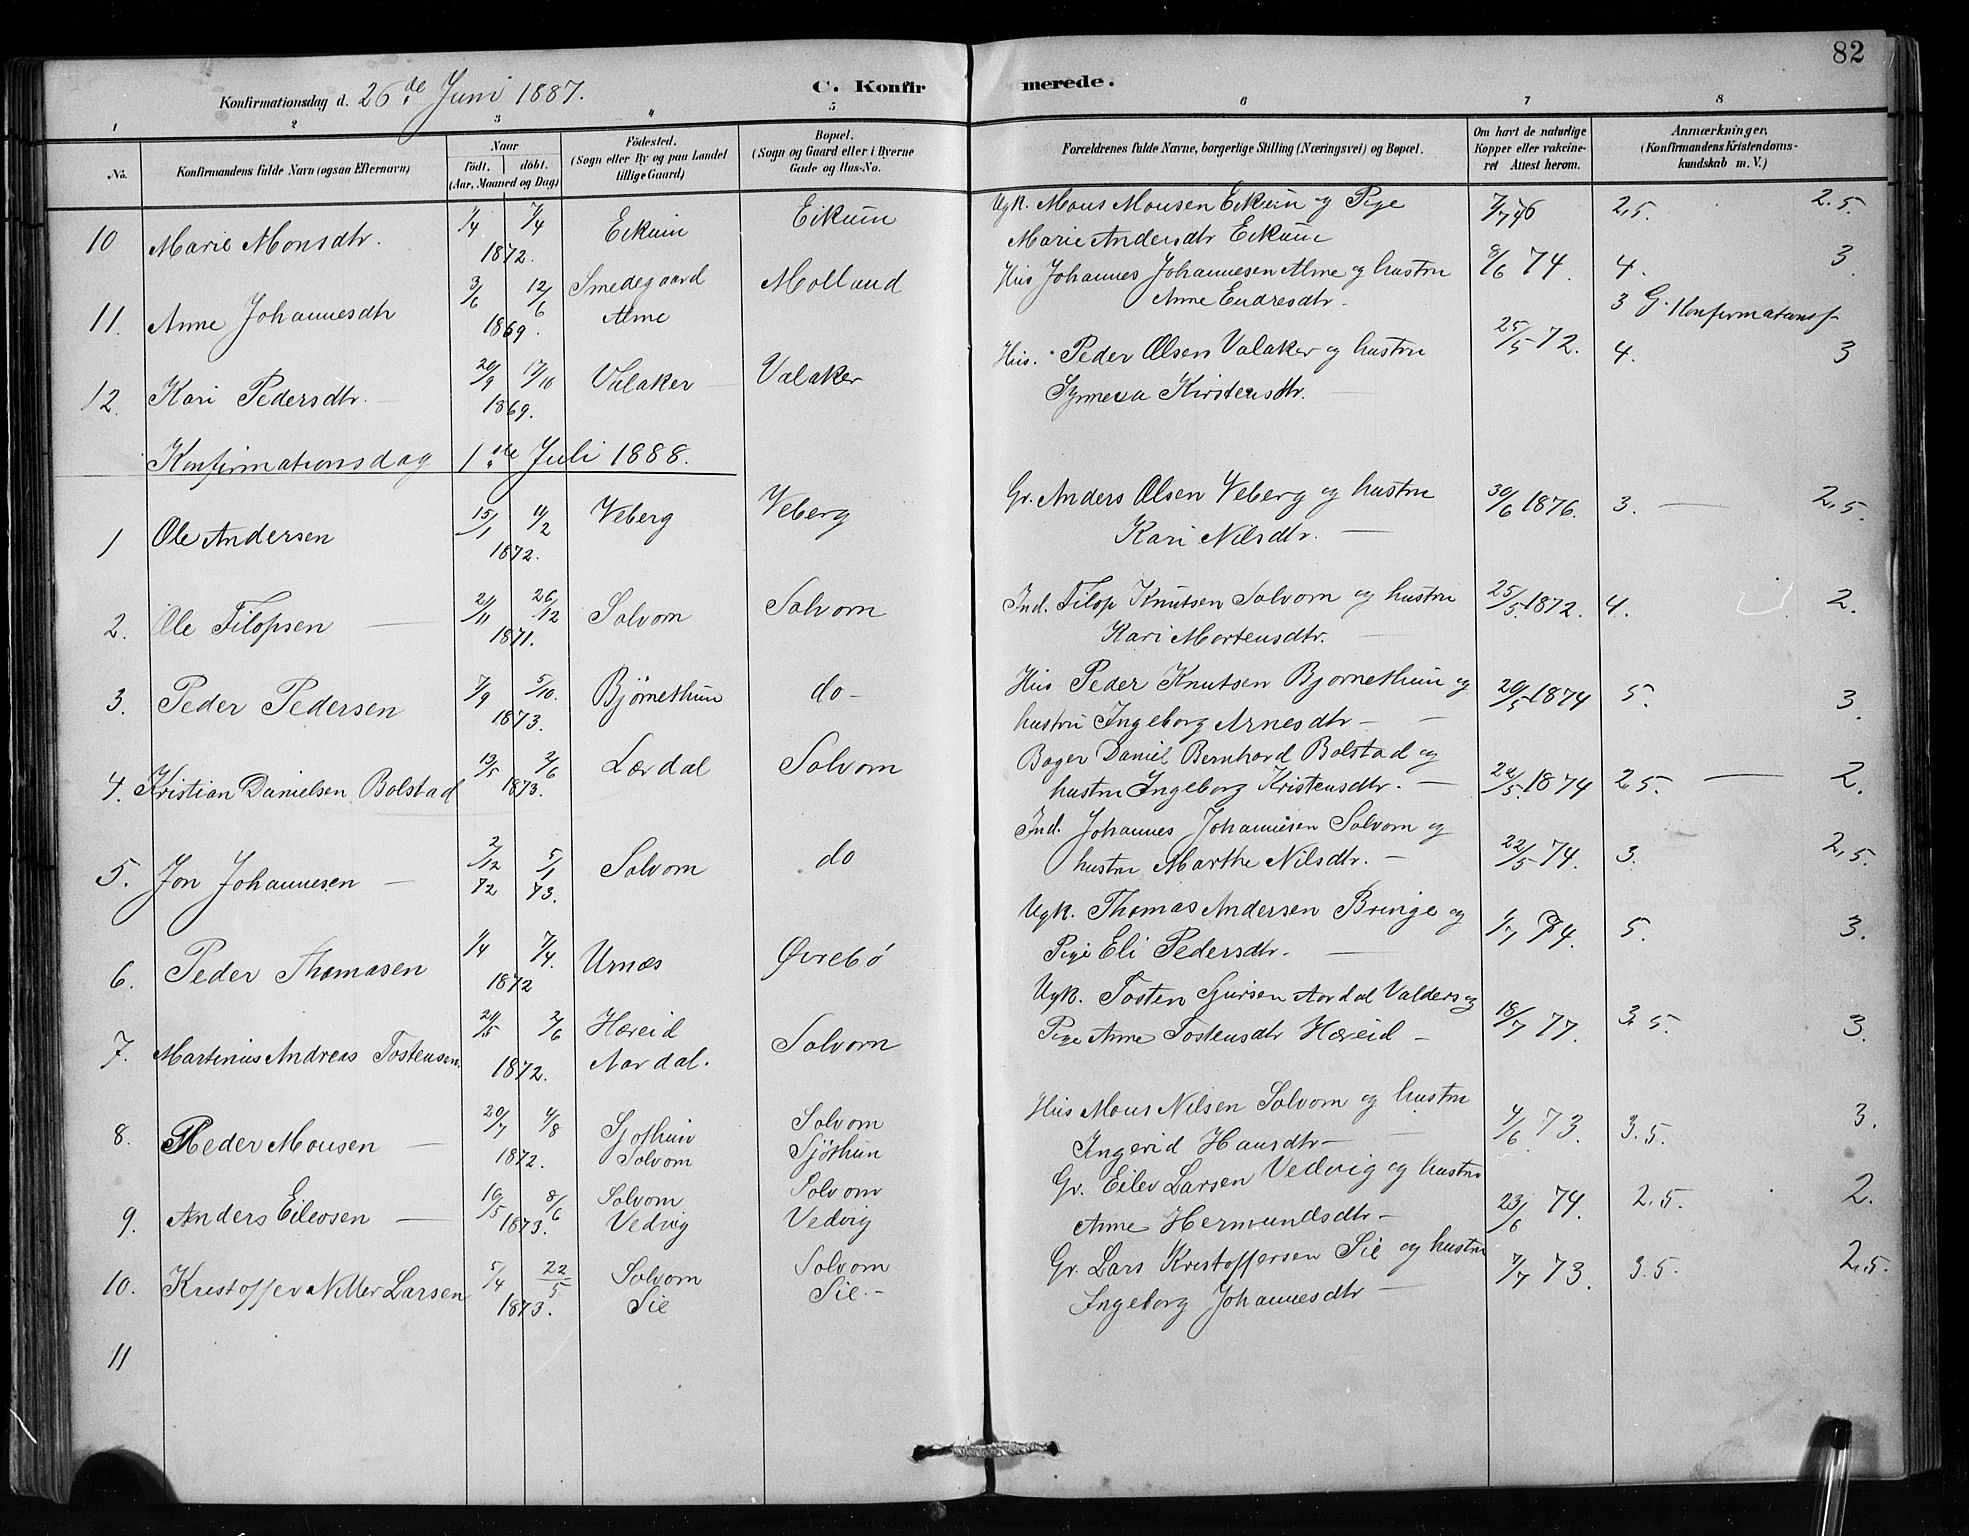 82
Konfirmationsdag d. 26de Juni 1887.
C. Konfirmerede.
1 2 3 4 5 6 7 8
No. Konfirmandens fulde Navn (ogsaa Efternavn) Naar födt. döbt. (Aar, Maaned og Dag) Födested. (Sogn eller By og paa Landet tillige Gaard) Bopæl. (Sogn og Gaard eller i Byerne Gade og Hus-No. Forældrenes fulde Navne, borgerlige Stilling (Næringsvei) og Bopæl. Om havt de naturlige Kopper eller vakcineret Attest herom. Anmærkninger, (Konfirmandens Kristendomskundskab m. V.)
10 Marie Monsdtr. 1/4 7/4 1872. Eikum Eikum Ugk. Mons Monsen Eikum og Pige 2,5. 2.5.
Marie Andersdtr Eikum
11. Anne Johannesdtr 3/6 12/6 1869. Smedegaard Alme Molland Hus Johannes Johannesen Alme og hustru 8/6 74. 4. 3.
Anne Endresdtr.
3 G. Konfirmationsf
12. Kari Pedersdtr. 20/9 17/10 1869. Valaker Valaker Hus. Peder Olsen Valaker og hustru 25/5 72. 4. 3
Synneva Kirstensdtr.
Konfirmationsdag 1ste Juli 1888.
1 Ole Andersen 15/1 11/2 1872. Veberg Veberg Gr. Anders Olsen Veberg og hustru 30/6 1876. 3. — 2,5.
Kari Nilsdtr.
2. Ole Filopsen 21/11 26/12 1871. Solvorn Solvorn Ind. Filop Knutsen Solvorn og hustru 25/5 1872. 4. 2.
Kari Mortensdtr.
3. Peder Pedersen 7/9 5/10. 1873. Bjørnethun do- Hus Peder Knutsen Bjørnethun og 20/5 1874 5. 3.
hustru Ingeborg Arnesdtr —
4. Kristian Danielsen Bolstad 13/5 2/6 1873. Lærdal Solvorn Bager Daniel Bernhard Bolstad og
hustru Ingeborg Kristensdtr. — 22/5. 1874 2,5. — 2.
5. Jon Johannesen 2/12 72 5/1 73. Solvorn do Ind. Johannes Johannesen Solvorn og
hustru Marthe Nilsdtr. — 22/5 74. 3. 2,5.
6. Peder Thomasen 1/4 7/4. 1872 Urnæs Øvrebø Ugk. Thomas Andersen Bringe og 1/7 74. 5. 3.
Pige Eli Pedersdtr.
7. Martinius Andreas Tostensen. 20/5 2/6 1872. Hæreid Aardal. Solvorn Ugk. Tosten Sjursen Aardal Valders og
Pige Anne Tostensdtr Hæreid — 18/7 77. 3.5. 3.
8. Peder Monsen 20/7 4/8 1872. Sjøthun Solvorn Solvorn Sjøthun Hus Mons Nilsen Solvorn og hustru 4/6 73. 3.5. 3.
Ingerid Hansdtr —
9. Anders Eilevsen 10/5 8/6 1873. Solvorn Vedvig Solvorn Vedvig Gr. Eilev Larsen Vedvig og hustru
Anne Hermundsdtr — 23/6 74. 2.5. 2.
10. Kristoffer Nitter Larsen 5/4 22/5 1873. Solvorn Sie Solvorn Sie.- Gr. Lars Kristoffersen Sie og hustru 7/7 73. 3.5. 2,5.
Ingeborg Johannesdtr —
11